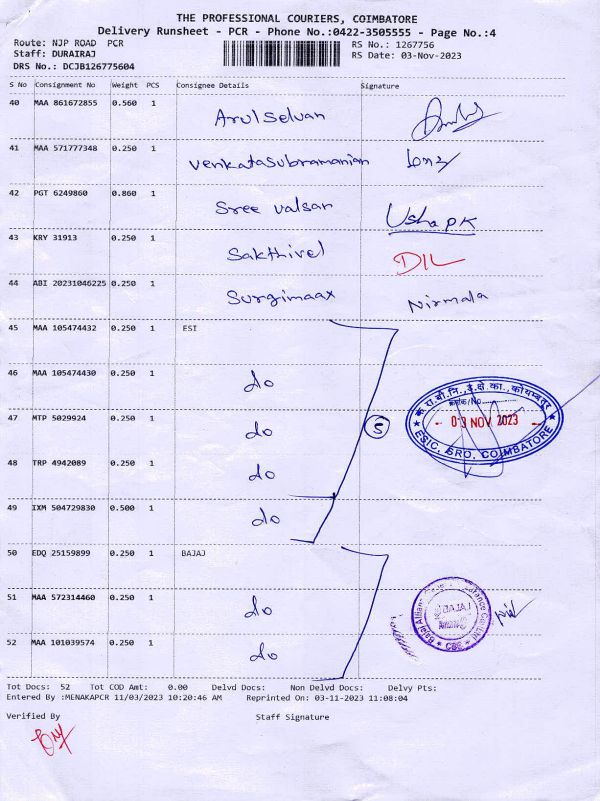 THE PROFESSIONAL COURIERS, COIMBATORE
Delivery Runsheet - PCR - Phone No.:0422-3505555 - Page No.:4
Route: NJP ROAD PCR
RS No.: 1267756
Staff: DURAIRAJ
RS Date: 03-Nov-2023
DRS No.: DCJB126775604
S No Consignment No Weight PCS Consignee Details Signature
40 MAA 861672855 0.560 1 Arulselvan
41 MAA 571777348 0.250 1 Venkatasubramanian
42 PGT 6249860 0.860 1 Sree valsan Usha PK
43 KRY 31913 0.250 1 Sakthivel DIL
44 ABI 20231046225 0.250 1 Surgimaax Nirmala
45 MAA 105474432 0.250 1 ESI
46 MAA 105474430 0.250 1 do
47 MTP 5029924 0.250 1 do
5
03 NOV 2023
ESIC, SRO, COIMBATORE
48 TRP 4942089 0.250 1 do
49 IXM 504729830 0.500 1 do
50 EDQ 25159899 0.250 1 BAJAJ
51 MAA 572314460 0.250 1 do
BAJAJ
CBE
52 MAA 101039574 0.250 1 do
Tot Docs: 52 Tot COD Amt: 0.00 Delvd Docs: Non Delvd Docs: Delvy Pts:
Entered By :MENAKAPCR 11/03/2023 10:20:46 AM Reprinted On: 03-11-2023 11:08:04
Verified By Staff Signature